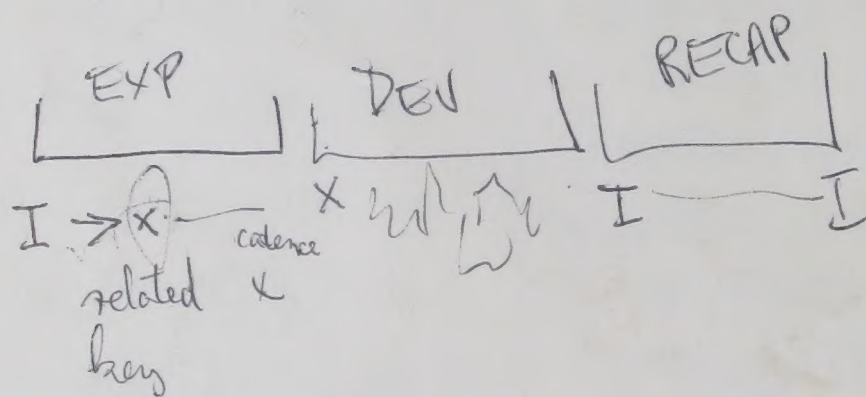 EXP DEV RECAP
I → X cadence X X I I
related
key